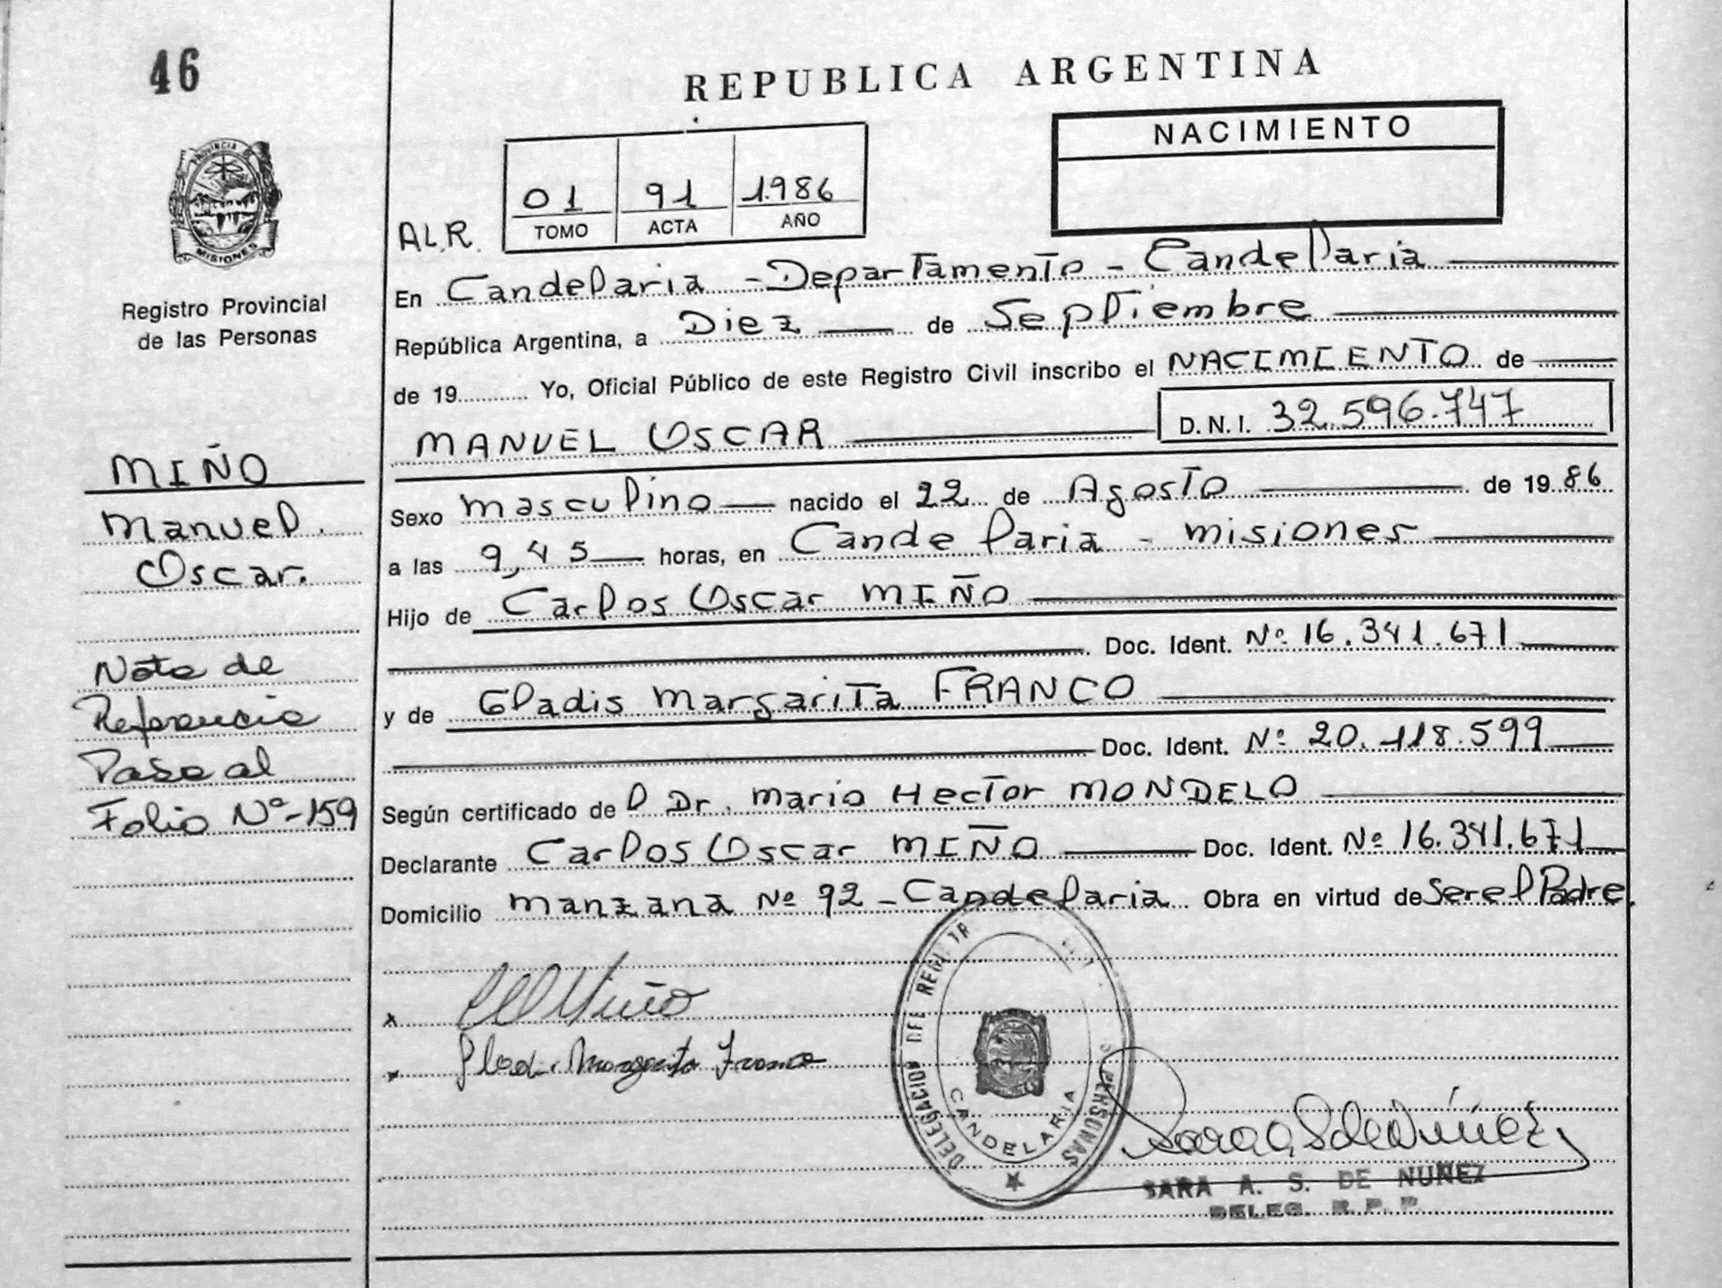 46
REPUBLICA ARGENTINA
NACIMIENTO
PROVINCIA DE
MISIONES
Registro Provincial
de las Personas
01 91 1.986
TOMO ACTA AÑO
A.L.R.
En Candelaria - Departamento - Candelaria
República Argentina, a Diez de Septiembre
de 19 Yo, Oficial Público de este Registro Civil inscribo el NACIMIENTO de
MANUEL OSCAR D.N.I. 32.596.747
MIÑO
Manuel.
Oscar.
Sexo masculino nacido el 22 de Agosto de 19 86
a las 9,45 horas, en Candelaria - misiones
Hijo de Carlos Oscar MIÑO
Doc. Ident. Nº 16.341.671
y de Gladis Margarita FRANCO
Doc. Ident. Nº 20.118.599
Nota de
Referencia
Pase al
Folio Nº-159
Según certificado del Dr. Mario Hector MONDELO
Declarante Carlos Oscar MIÑO Doc. Ident. Nº 16.341.671
Domicilio manzana Nº 92 - Candelaria Obra en virtud de Ser el Padre.
x Miño
x Margarita Franco
DELEGACION DEL PERSONAS
CANDELARIA
Sara A S de Núñez
SARA A. S. DE NUÑEZ
DELEG. R. P. P.